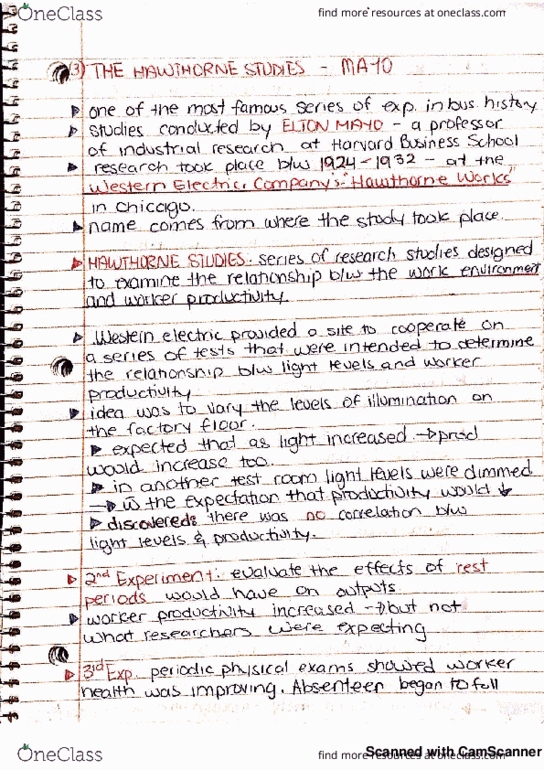 OneClass
find more resources at oneclass.com
(3) THE HAWTHORNE STUDIES - MAYO
one of the most famous series of exp. in bus history
studies conducted by ELTON MAYO - a professor
of industrial research at Harvard Business School
research took place b/w 1924-1932 - at the
Western Electric Company's "Hawthorne Works"
in Chicago.
name comes from where the study took place.
HAWTHORNE STUDIES: series of research studies designed
to examine the relationship b/w the work environment
and worker productivity.
Western electric provided a site to cooperate on
a series of tests that were intended to determine
the relationship b/w light levels and worker
productivity
idea was to vary the levels of illumination on
the factory floor.
expected that as light increased → prod
would increase too.
in another test room light levels were dimmed
→ w the expectation that productivity would ↓
discovered: there was no correlation b/w
light levels & productivity.
2nd Experiment: evaluate the effects of rest
periods would have on outputs
worker productivity increased → but not
what researchers were expecting
3rd Exp. periodic physical exams showed worker
health was improving. Absenteer began to fall
OneClass
find more resources at oneclass.com
Scanned with CamScanner